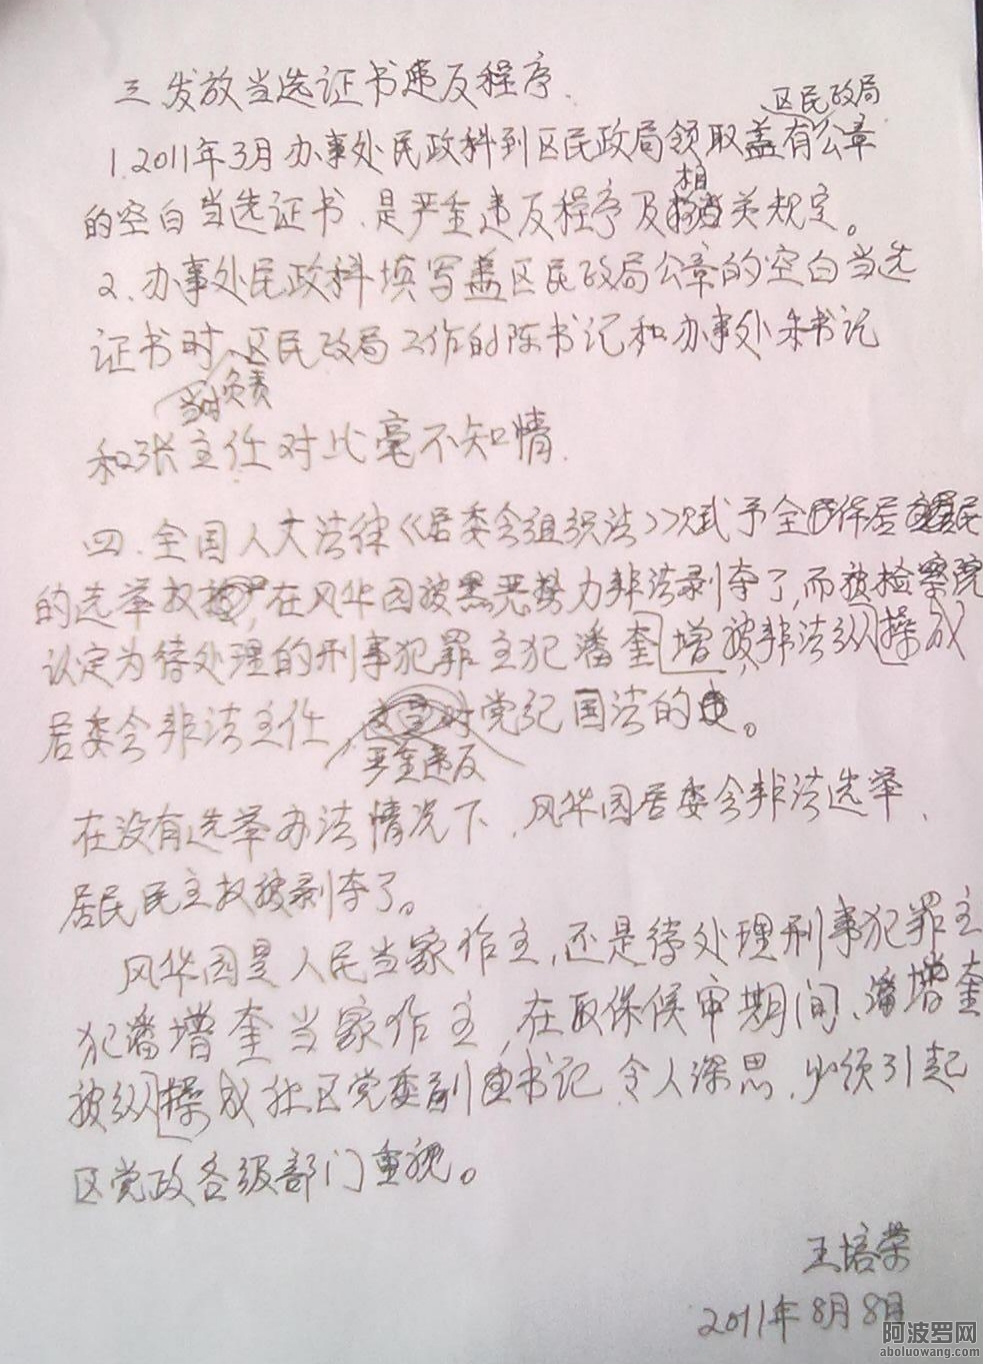 三、发放当选证书违反程序.
区民政局
1.2011年3月办事处民政科到区民政局领取盖有公章
相
的空白当选证书.是严重违反程序及关规定。
2、办事处民政科填写盖区民政局公章的空白当选
证书时、区民政局工作的陈书记和办事处朱书记
当时负责
和张主任对比毫不知情.
四、全国人大法律《居委会组织法》赋予全体居民
的选举权,在风华园被黑恶势力非法剥夺了,而被检察院
认定为待处理的刑事犯罪主犯潘奎增被非法纵操成
居委会非法主任、党纪国法的。
严重违反
在没有选举办法情况下、风华园居委会非法选举、
居民民主权被剥夺了。
风华园是人民当家作主,还是待处理刑事犯罪主
犯潘增奎当家作主,在取保候审期间、潘增奎
被纵操成社区党委副书记.令人深思.必须引起
区党政各级部门重视。
王培荣
2011年8月8日
阿波罗网
aboluowang.com